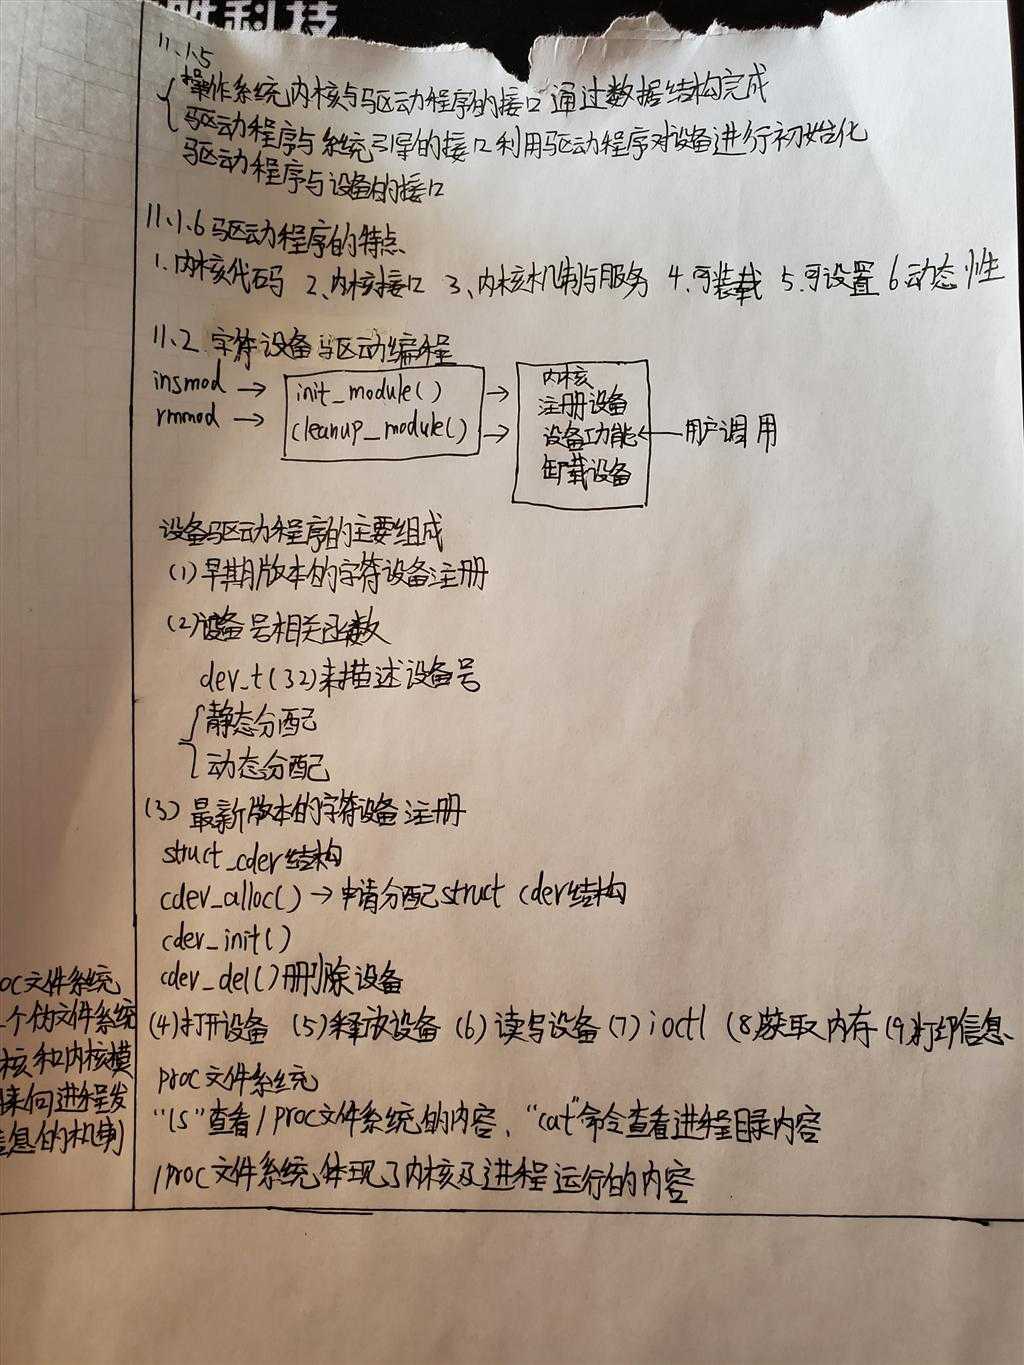 胜科技
11.1.5
操作系统内核与驱动程序的接口 通过数据结构完成
驱动程序与系统引导的接口 利用驱动程序对设备进行初始化
驱动程序与设备的接口
11.1.6 驱动程序的特点
1.内核代码 2.内核接口 3.内核机制与服务 4.可装载 5.可设置 6.动态性
11.2 字符设备驱动编程
insmod → init_module() →
rmmod → cleanup_module() →
内核
注册设备
设备功能 ← 用户调用
卸载设备
设备驱动程序的主要组成
(1)早期版本的字符设备注册
(2)设备号相关函数
dev_t(32)来描述设备号
静态分配
动态分配
(3)最新版本的字符设备注册
struct_cder结构
cdev_alloc() → 申请分配struct cder结构
cder_init()
cdev_del()删除设备
(4)打开设备 (5)释放设备 (6)读写设备 (7)ioctl (8)获取内存 (9)打印信息
proc文件系统
"ls"查看/proc文件系统的内容、"cat"命令查看进程目录内容
/proc文件系统体现了内核及进程运行的内容
oc文件系统
个伪文件系统
核和内核模
来向进程发
息的机制